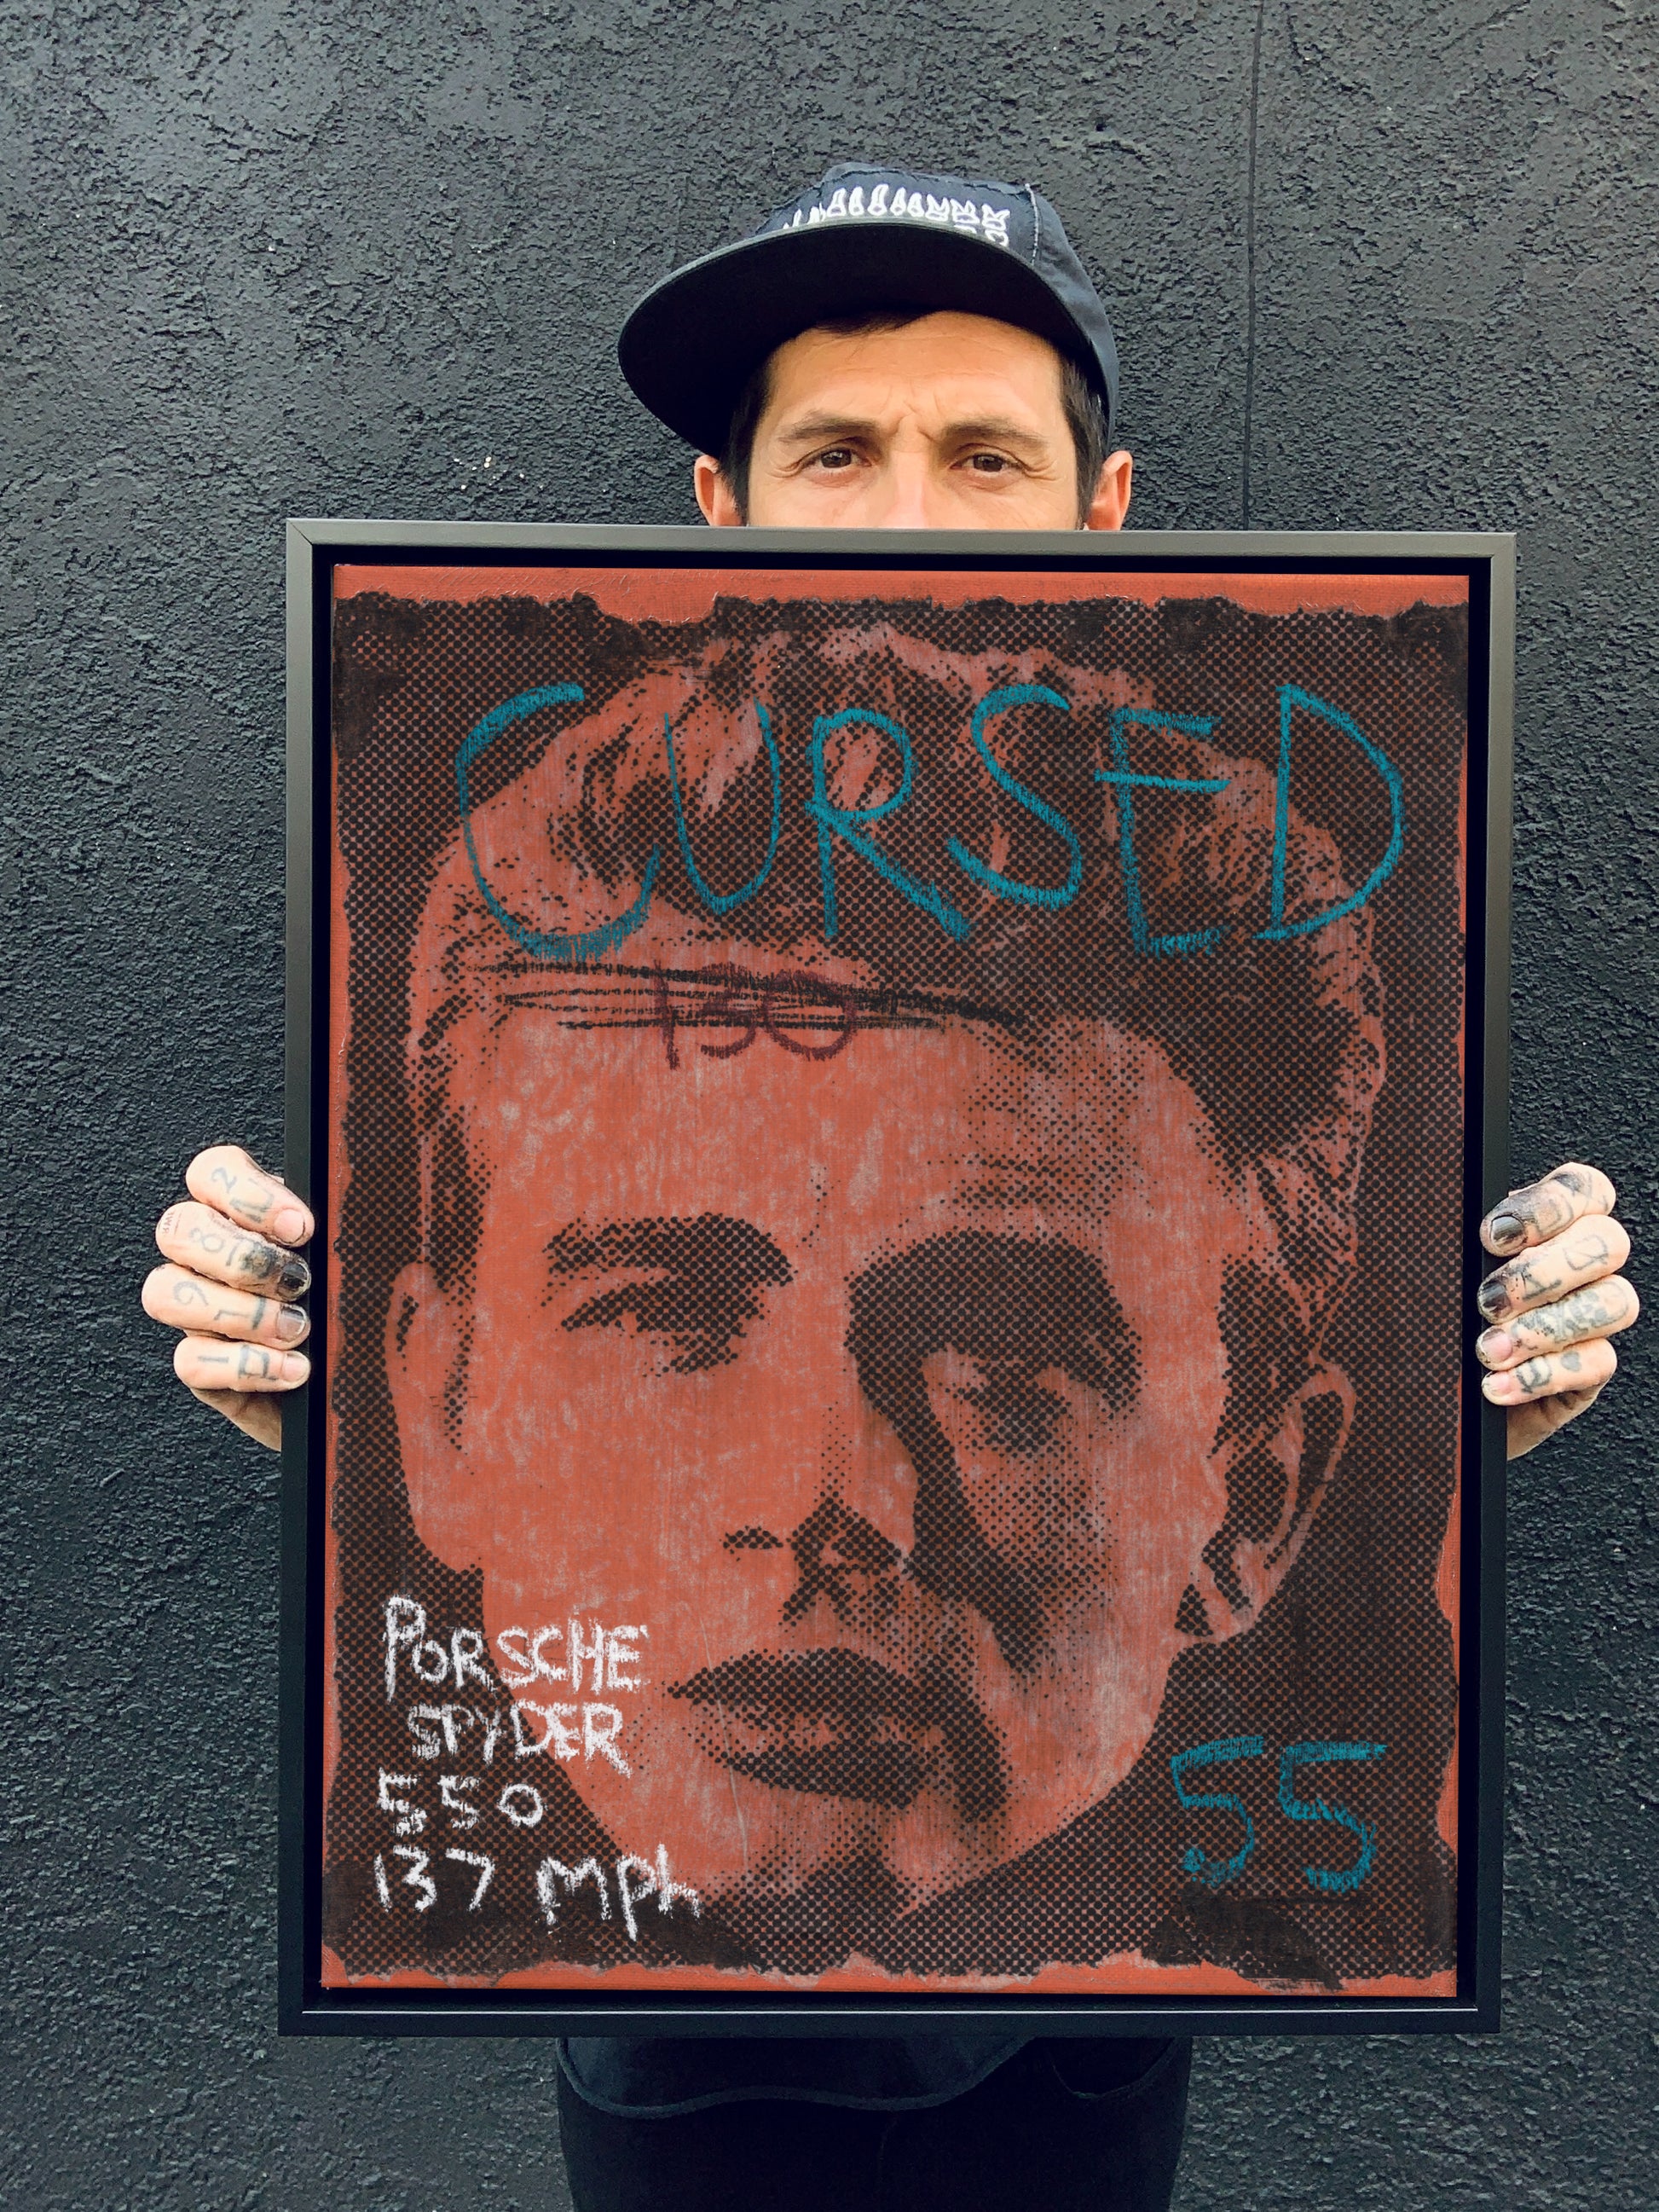 CURSED
130
PORSCHE
SPYDER
550
137 mph
55